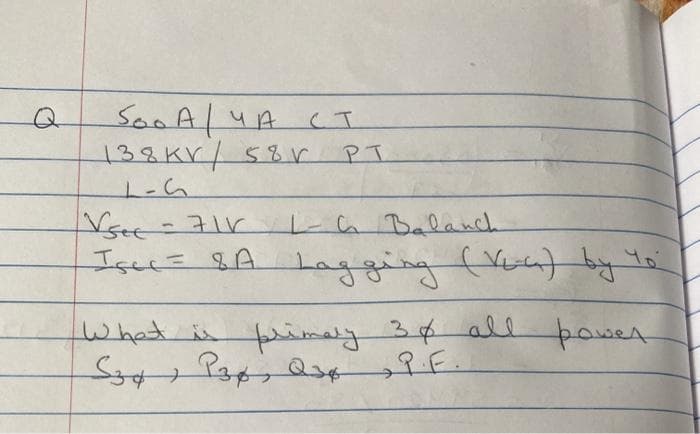 Q 500A / 4A CT
138KV / 58V PT
L-G
Vsec = 71V L-G Balanch
Isec = 8A Lagging (VL-G) by 40°
What is primary 3ϕ all power
S3ϕ, P3ϕ, Q3ϕ, P.F.